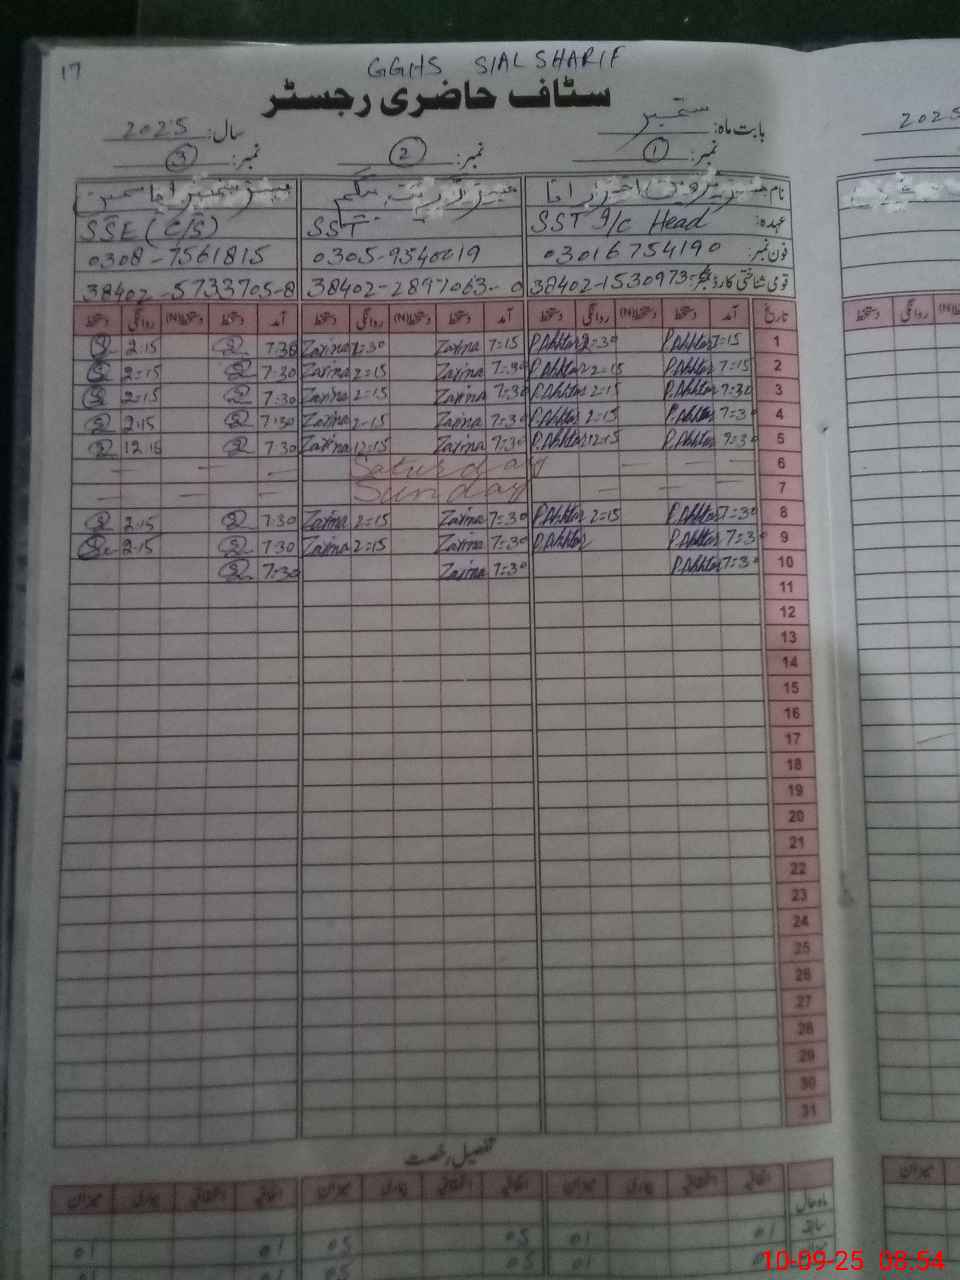 17
GGHS SIAL SHARIF
سٹاف حاضری رجسٹر
بابت ماہ: ستمبر
سال: 2025
نمبر: 1 نمبر: 2 نمبر: 3
2025
نام
عہدہ: SST I/c Head SST SSE (C/S)
فون نمبر: 03016754190 0305-9540019 0308-7561815
قومی شناختی کارڈ نمبر 38402-1530973-6 38402-2897063-0 38402-5733705-8
تاریخ آمد دستخط دستخط(N) روانگی دستخط آمد دستخط دستخط(N) روانگی دستخط آمد دستخط دستخط(N) روانگی دستخط
1 7=15 P.Akhtar 2=30 P.Akhtar 7=15 Zarina 2=30 Zarina 7:30 2:15
2 7=15 P.Akhtar 2=15 P.Akhtar 7=30 Zarina 2=15 Zarina 7:30 2=15
3 7=30 P.Akhtar 2=15 P.Akhtar 7=30 Zarina 2=15 Zarina 7:30 2=15
4 7=30 P.Akhtar 2=15 P.Akhtar 7=30 Zarina 2=15 Zarina 7:30 2:15
5 7=30 P.Akhtar 12=15 P.Akhtar 7=30 Zarina 12=15 Zarina 7:30 12:15
6 Saturday
7 Sunday
8 7=30 P.Akhtar 2=15 P.Akhtar 7=30 Zarina 2=15 Zarina 7:30 2:15
9 7=30 P.Akhtar P.Akhtar 7=30 Zarina 2=15 Zarina 7:30 2:15
10 7=30 P.Akhtar 7=30 Zarina 7:30
11
12
13
14
15
16
17
18
19
20
21
22
23
24
25
26
27
28
29
30
31
تفصیل رخصت
اتفاقیہ استحقاقیہ بیماری میزان اتفاقیہ استحقاقیہ بیماری میزان اتفاقیہ استحقاقیہ بیماری میزان
ماہ حال
سابقہ 01 01 05 05 01 01
میزان 05 05 01 01
10-09-25 08:54